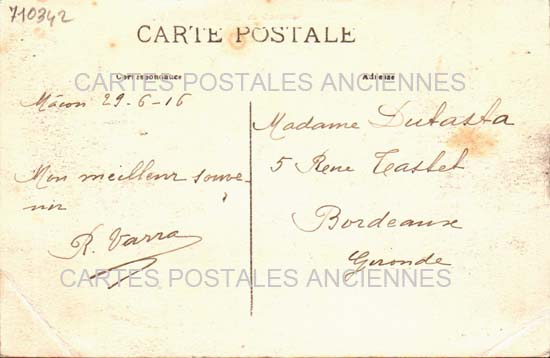 710342
CARTE POSTALE
Correspondance
Adresse
CARTES POSTALES ANCIENNES
Mâcon 29-6-16
Mon meilleur souve-
nir
R. Varra
Madame Dutasta
5 Rue Castet
Bordeaux
Gironde
CARTES POSTALES ANCIENNES